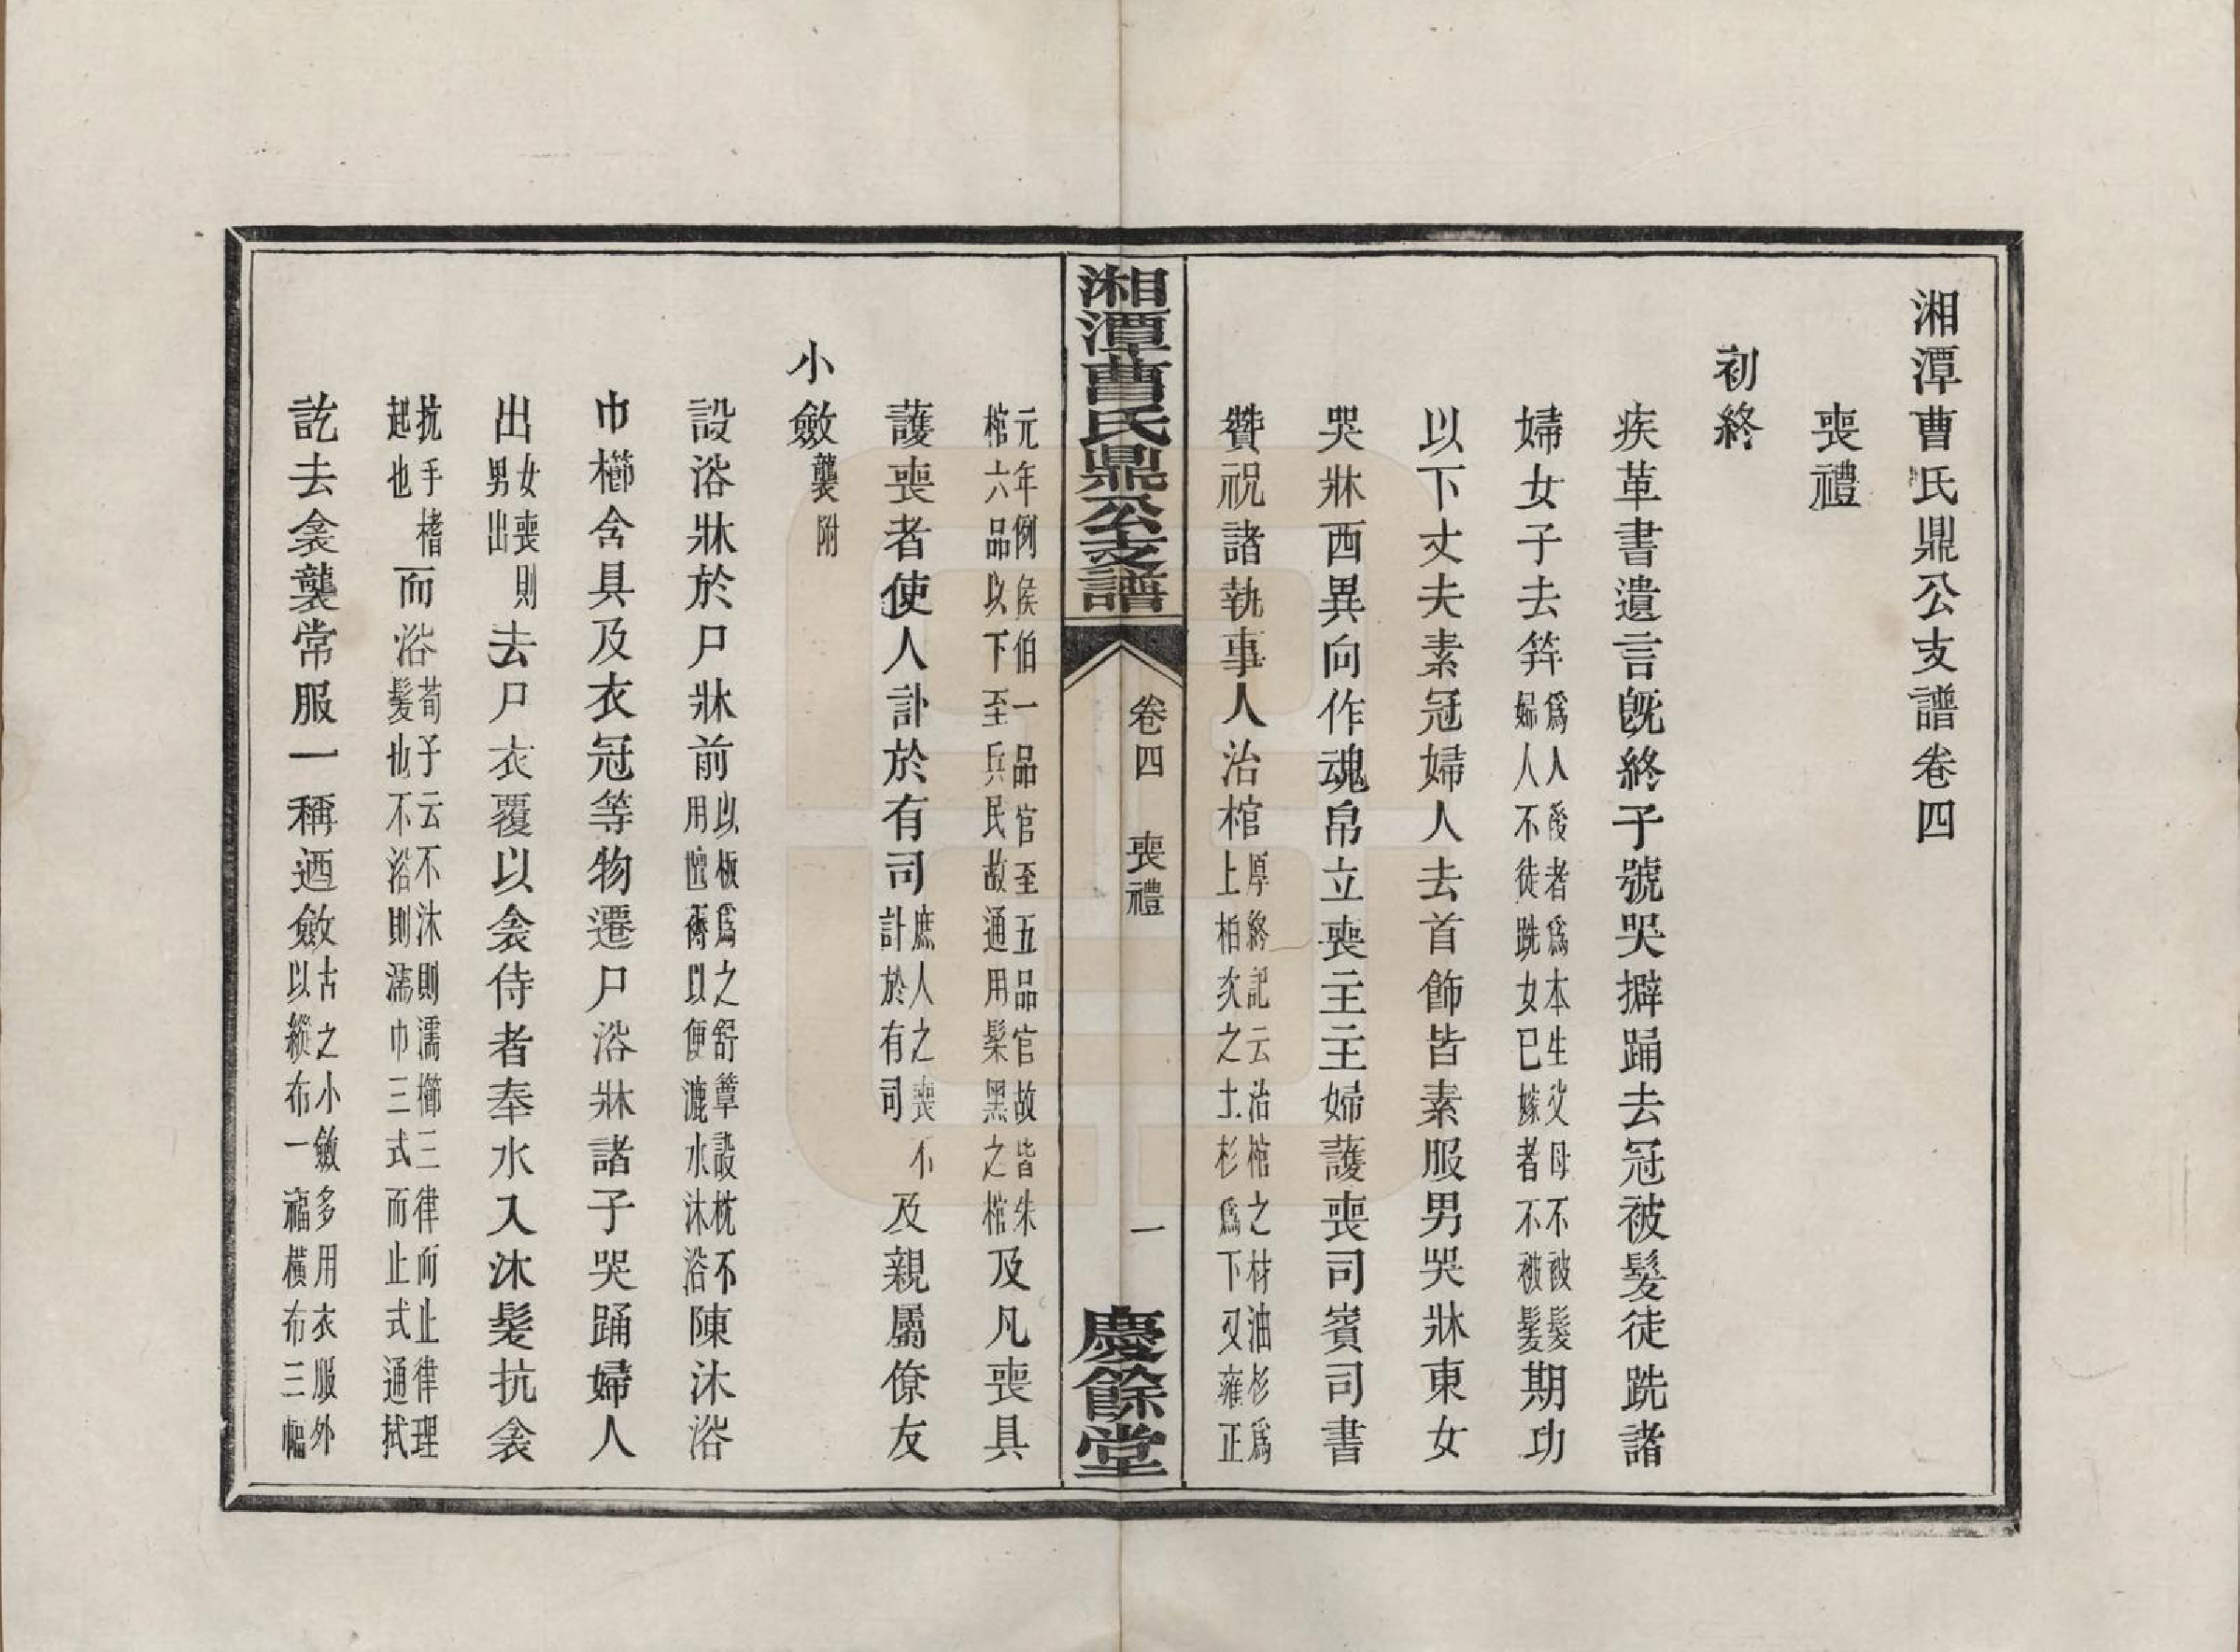 湘潭曹氏鼎公支譜卷四
喪禮
初終
疾革書遺言旣終子號哭擗踊去冠被髮徒跣諸
婦女子去笄爲人後者爲本生父母不被髮婦人不徒跣女已嫁者不被髮期功
以下丈夫素冠婦人去首飾皆素服男哭牀東女
哭牀西異向作魂帛立喪主主婦護喪司賓司書
贊祝諸執事人治棺厚終記云治棺之材油杉爲上柏次之土杉爲下又雍正
湘潭曹氏鼎公支譜 卷四 喪禮 一 慶餘堂
元年例侯伯一品官至五品官故皆朱棺六品以下至兵民故通用髹黑之棺及凡喪具
護喪者使人訃於有司庶人之喪不計於有司及親屬僚友
小斂襲附
設浴牀於尸牀前以板爲之舒簟設枕不用氊褥以便漉水沐浴陳沐浴
巾櫛含具及衣冠等物遷尸浴牀諸子哭踊婦人
出女喪則男出去尸衣覆以衾侍者奉水入沐髮抗衾
抗手楮起也而浴荀子云不沐則濡櫛三律而止律理髮也不浴則濡巾三式而止式通拭
訖去衾襲常服一稱迺斂古之小斂多用衣服外以縱布一福橫布三幅